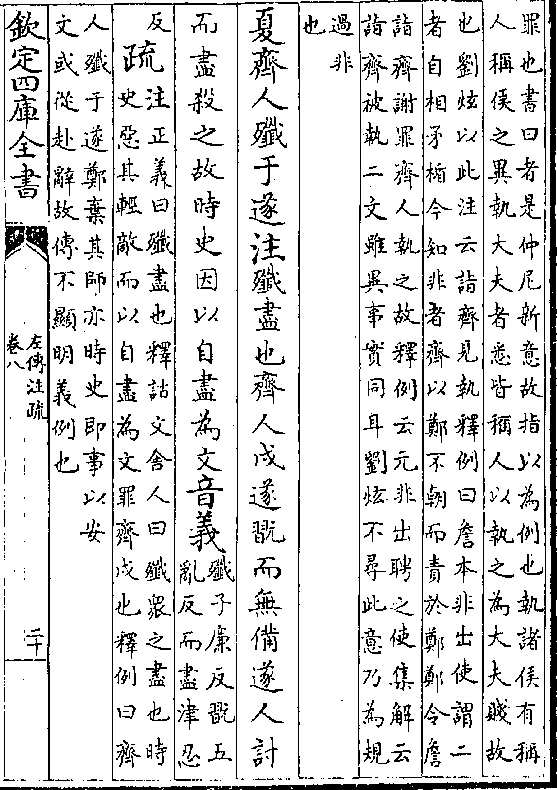 罪也書曰者是仲尼新意故指以為例也執諸侯有稱
人稱侯之異執大夫者悉皆稱人以執之為大夫賤故
也劉炫以此注云詣齊見執釋例曰詹本非出使謂二
者自相矛楯今知非者齊以鄭不朝而責於鄭鄭令詹
詣齊謝罪齊人執之故釋例云元非出聘之使集解云
詣齊被執二文雖異事實同耳劉炫不尋此意乃為規
過非
也
夏齊人殲于遂注殲盡也齊人戍遂翫而無備遂人討
而盡殺之故時史因以自盡為文音義殲子廉反翫五
亂反而盡津忍
反
疏注正義曰殲盡也釋詁文舍人曰殲衆之盡也時
史惡其輕敵而以自盡為文罪齊戍也釋例曰齊
人殲于遂鄭棄其師亦時史即事以安
文或從赴辭故傳不顯明義例也
欽定四庫全書
左傳注疏
卷八
二十